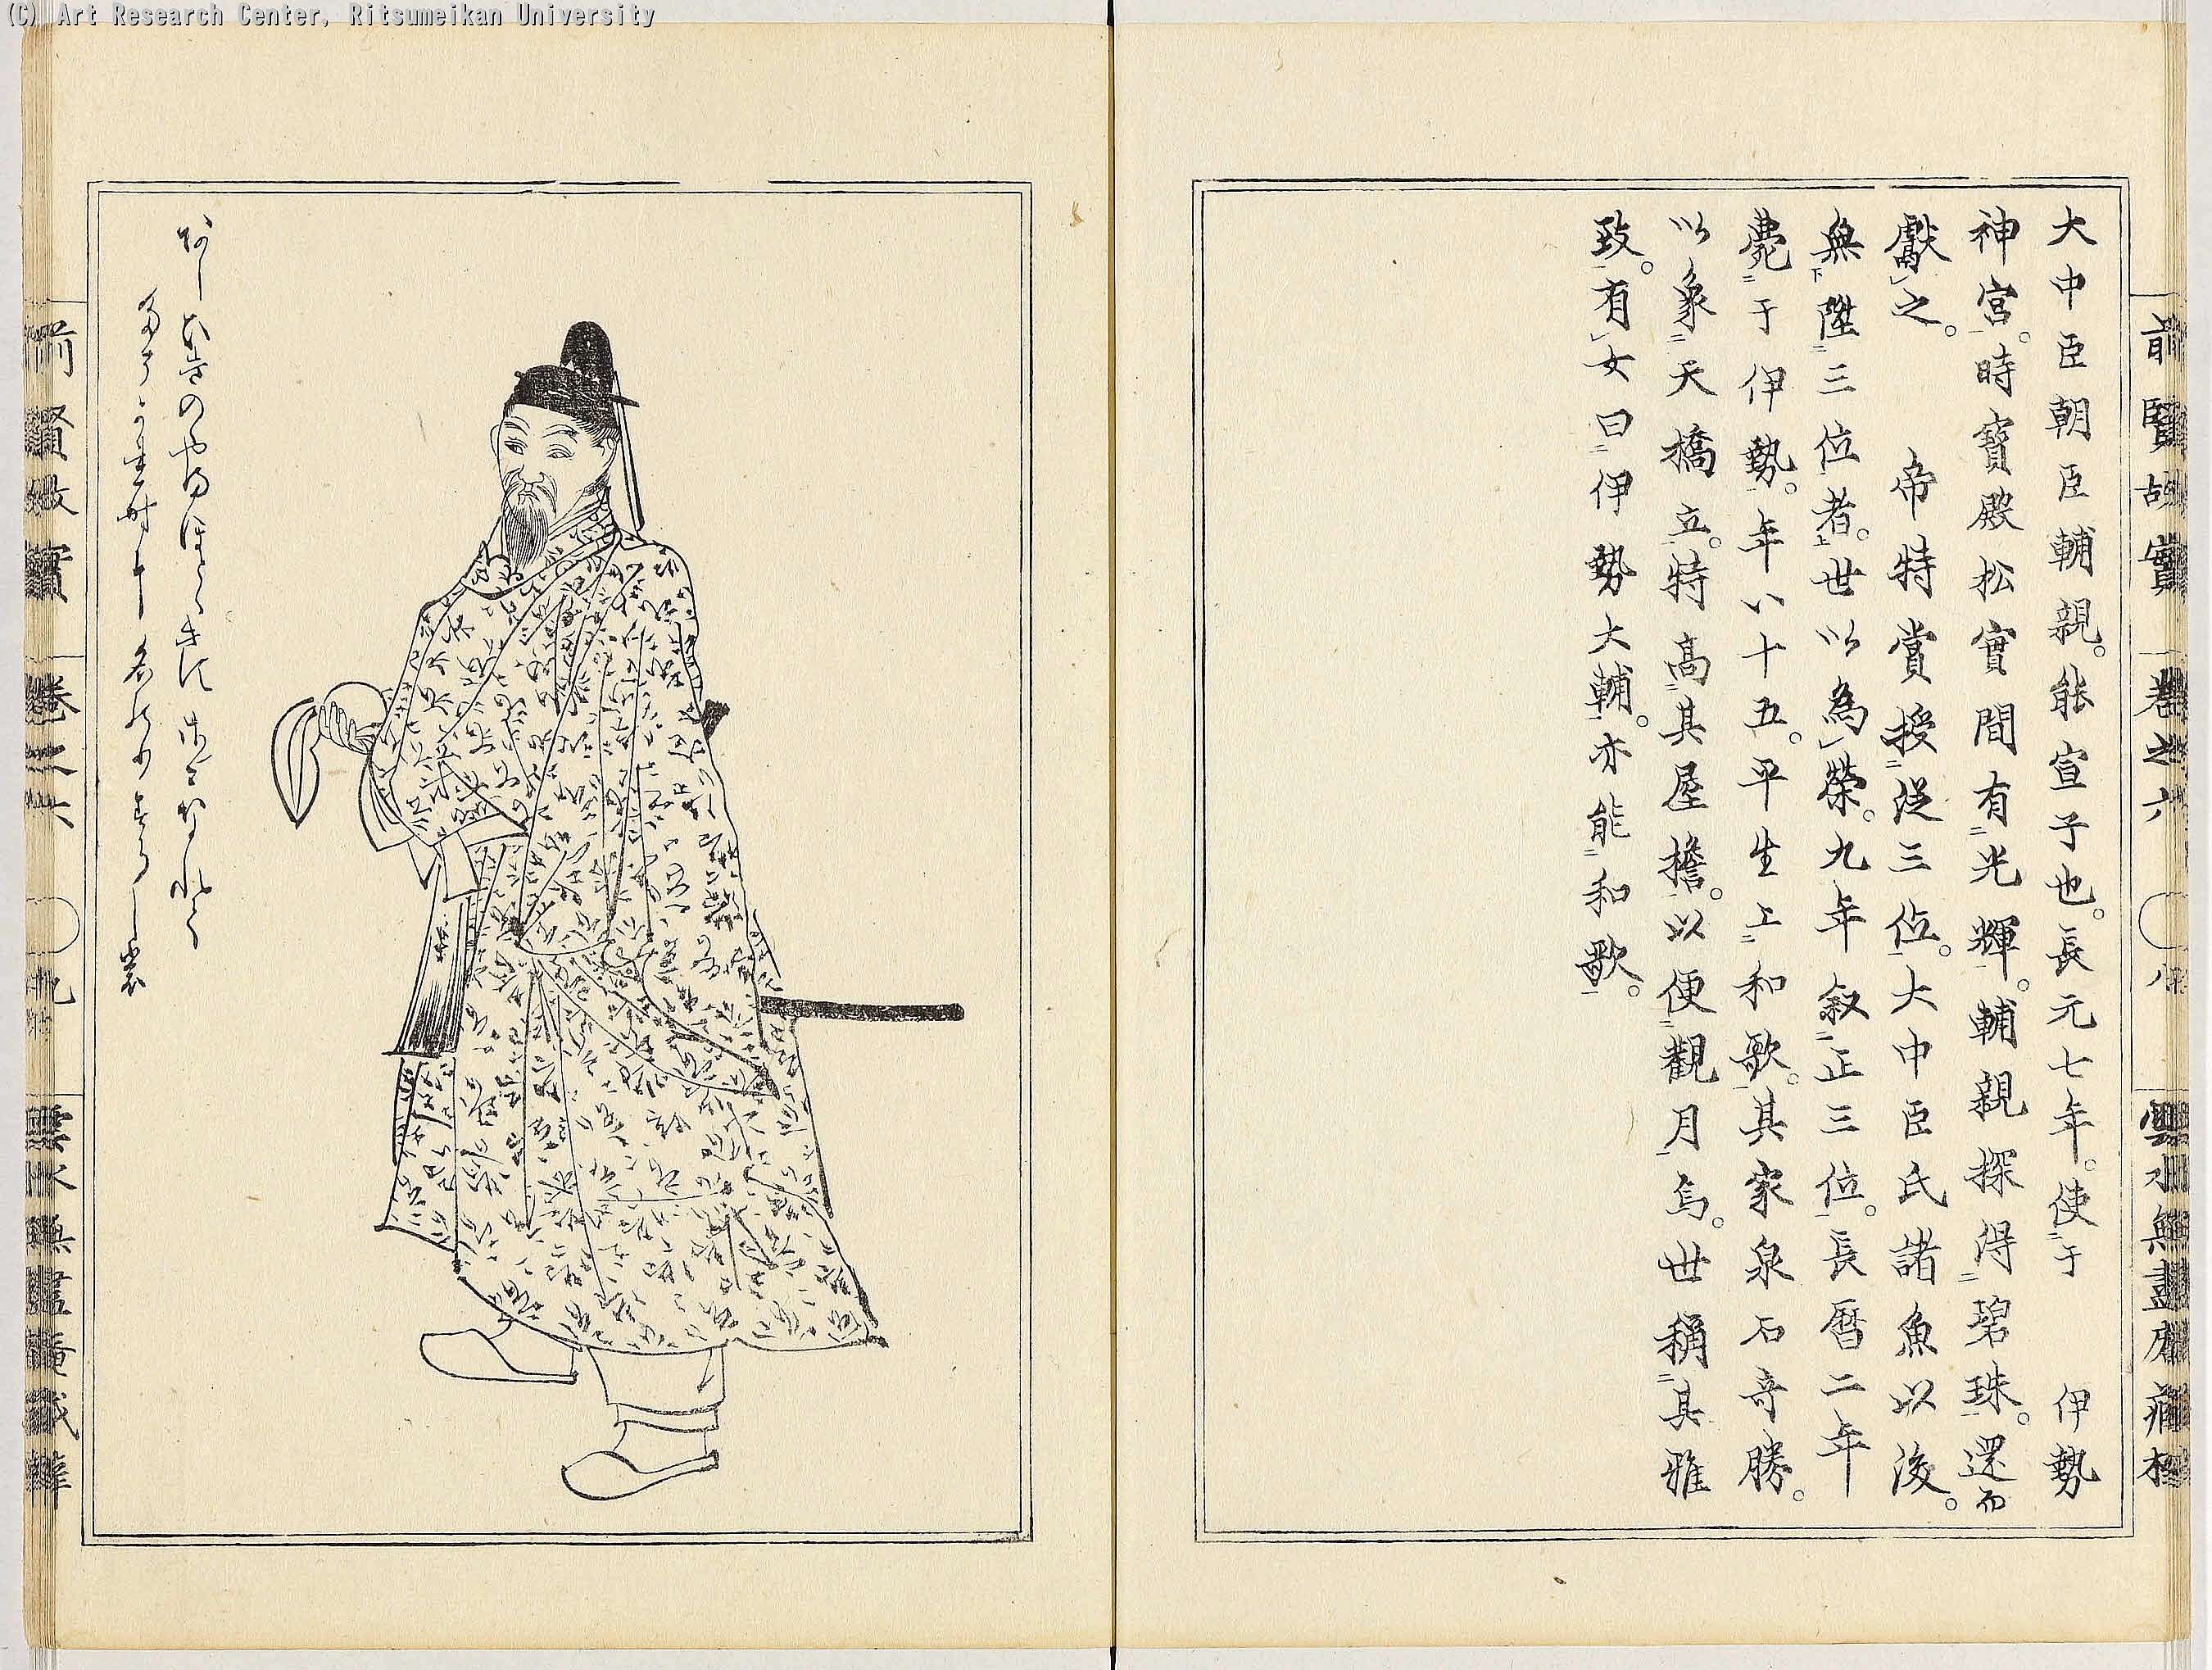 (C) Art Research Center, Ritsumeikan University
前賢故實 卷之六 八 雲水無盡庵藏梓
大中臣朝臣輔親。能宣子也。長元七年。使二于 伊勢
神宮一。時寶殿松實間有二光輝一。輔親探得二碧珠一。還而
獻レ之。 帝特賞授二從三位一。大中臣氏諸魚以後。
無下陞二三位一者上。世以為レ榮。九年叙二正三位一。長曆二年
薨二于伊勢一。年八十五。平生上二和歌一。其家泉石奇勝。
以象二天橋立一。特高二其屋擔一。以便二觀月一焉。世稱二其雅
致一。有レ女曰二伊勢大輔一。亦能二和歌一。
前賢故實 卷之六 九 雲水無盡庵藏梓